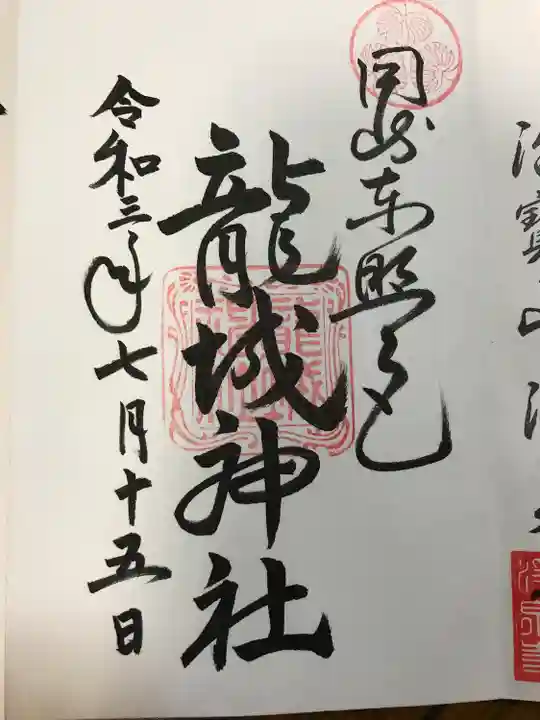 岡崎東照宮
龍城神社
令和三年七月十五日